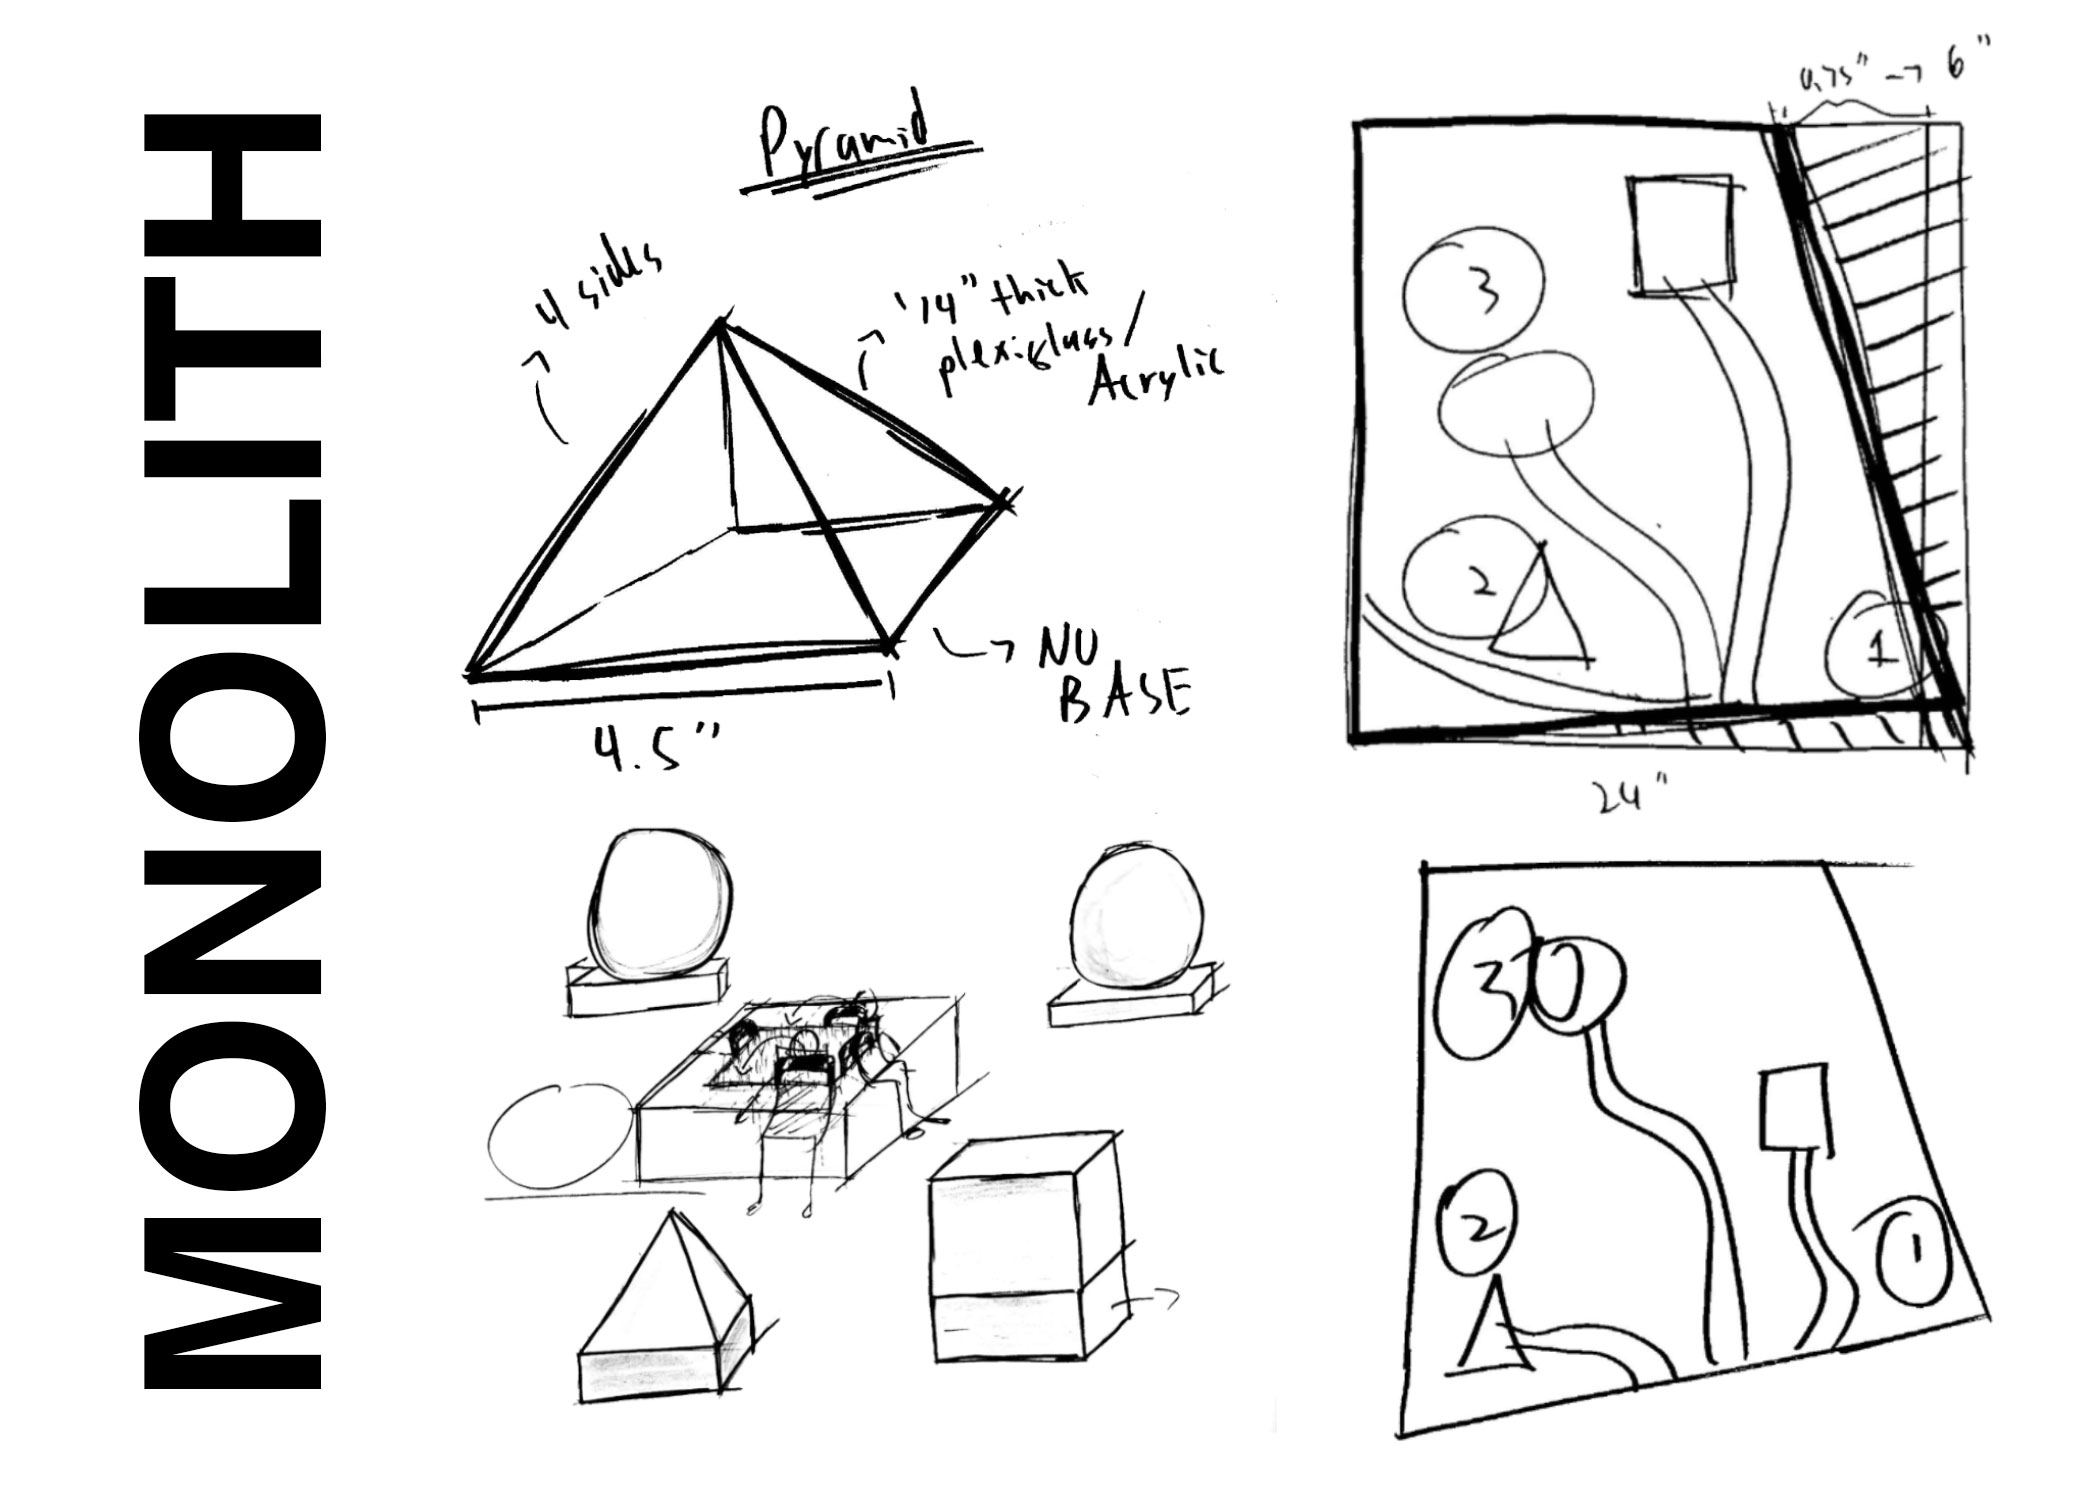 MONOLITH
Pyramid
4 sides
1/4" thick
plexiglass/
Acrylic
NO
BASE
4.5"
0.75" → 6"
3
2
1
24"
3
2
1